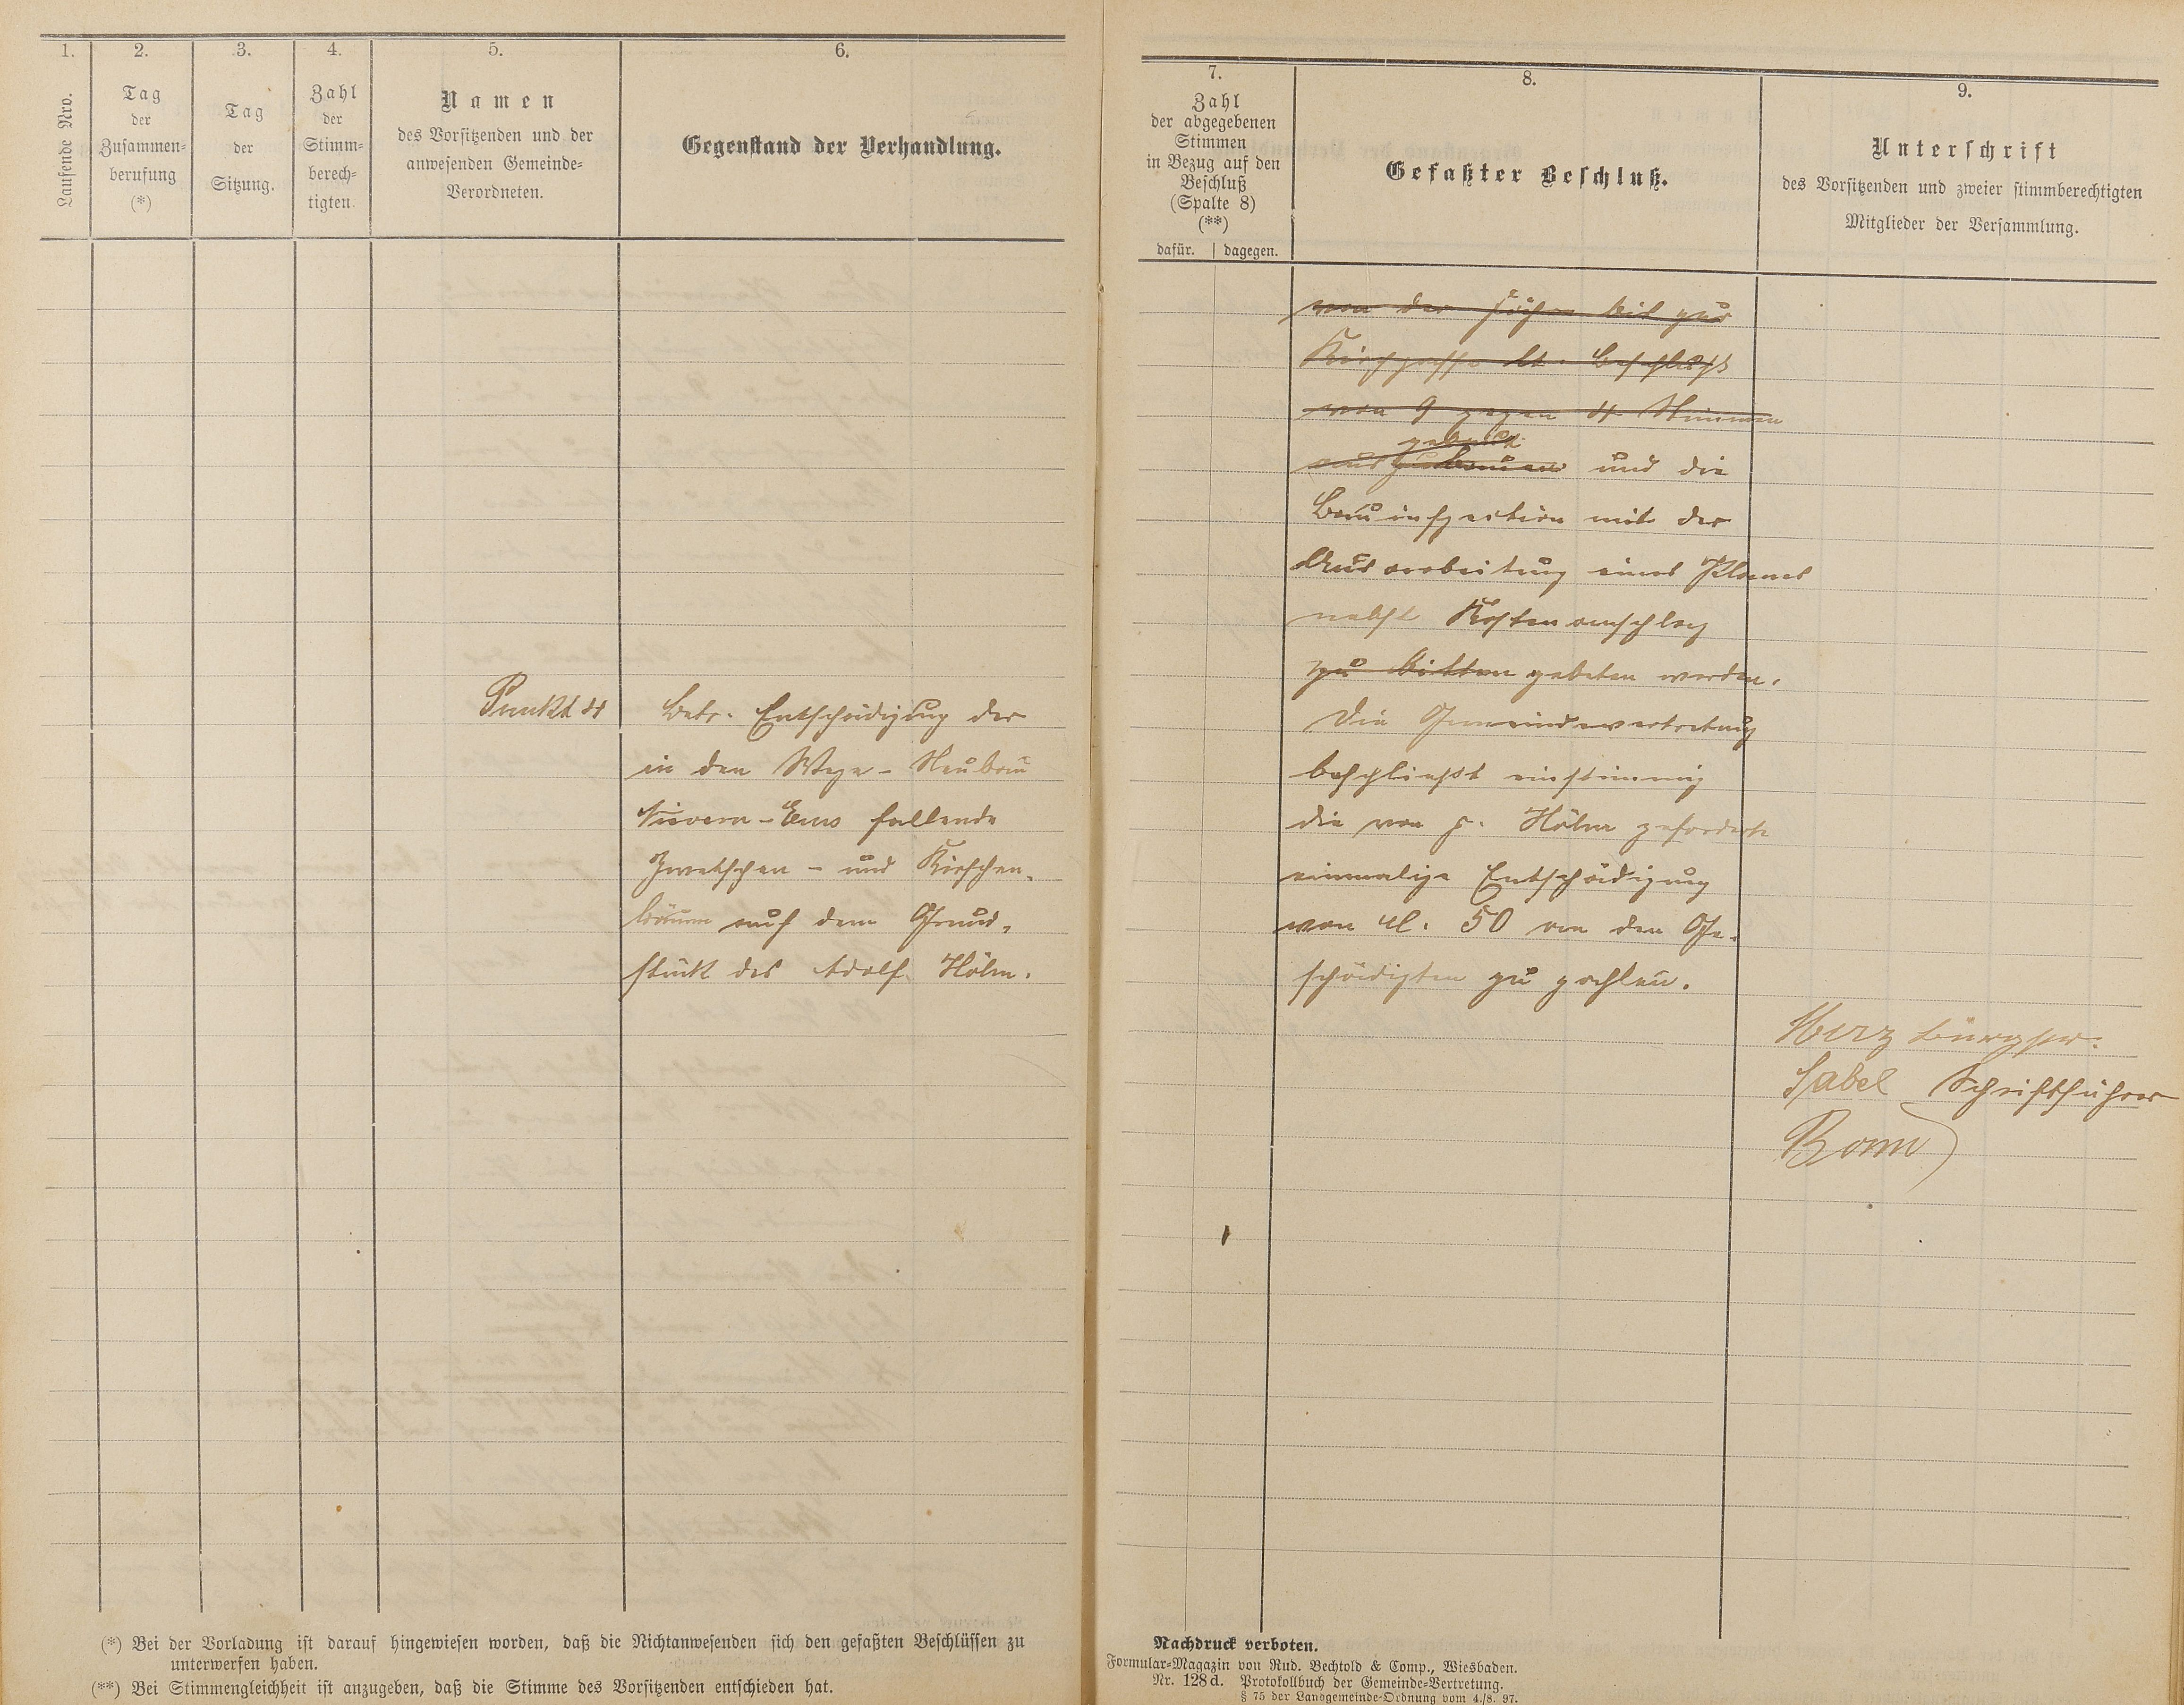 1.
Laufende Nro.
2.
Tag
der
Zusammen-
berufung
(*)
3.
Tag
der
Sitzung.
4.
Zahl
der
Stimm-
berech-
tigten.
5.
Namen
des Vorsitzenden und der
anwesenden Gemeinde-
Verordneten.
6.
Gegenstand der Verhandlung.
Punkt 4
Betr. Entschädigung der
in den Wege-Neubau
Nievern-Ems fallende
Zwetschen- und Kirschen-
bäume auf dem Grund-
stück des Adolf Höhn.
(*) Bei der Vorladung ist darauf hingewiesen worden, daß die Nichtanwesenden sich den gefaßten Beschlüssen zu
unterwerfen haben.
(**) Bei Stimmengleichheit ist anzugeben, daß die Stimme des Vorsitzenden entschieden hat.
7.
Zahl
der abgegebenen
Stimmen
in Bezug auf den
Beschluß
(Spalte 8)
(**)
dafür. dagegen.
8.
Gefaßter Beschluß.
9.
Unterschrift
des Vorsitzenden und zweier stimmberechtigten
Mitglieder der Versammlung.
von der bis zur
Kirchgasse lt. Beschluß
von 9 gegen 4 Stimmen
gebaut
auszubauen und die
Bauinspection mit der
Ausarbeitung eines Planes
nebst Kostenanschlag
zu bitten gebeten werden.
Die Gemeindevertretung
beschließt einstimmig
die von p. Höhn geforderte
einmalige Entschädigung
von M. 50 an den Ge-
schädigten zu zahlen.
Herz Bürgstr.
Sabel Schriftführer
Bonn
Nachdruck verboten.
Formular-Magazin von Rud. Bechtold & Comp., Wiesbaden.
Nr. 128d. Protokollbuch der Gemeinde-Vertretung.
§ 75 der Landgemeinde-Ordnung vom 4./8. 97.